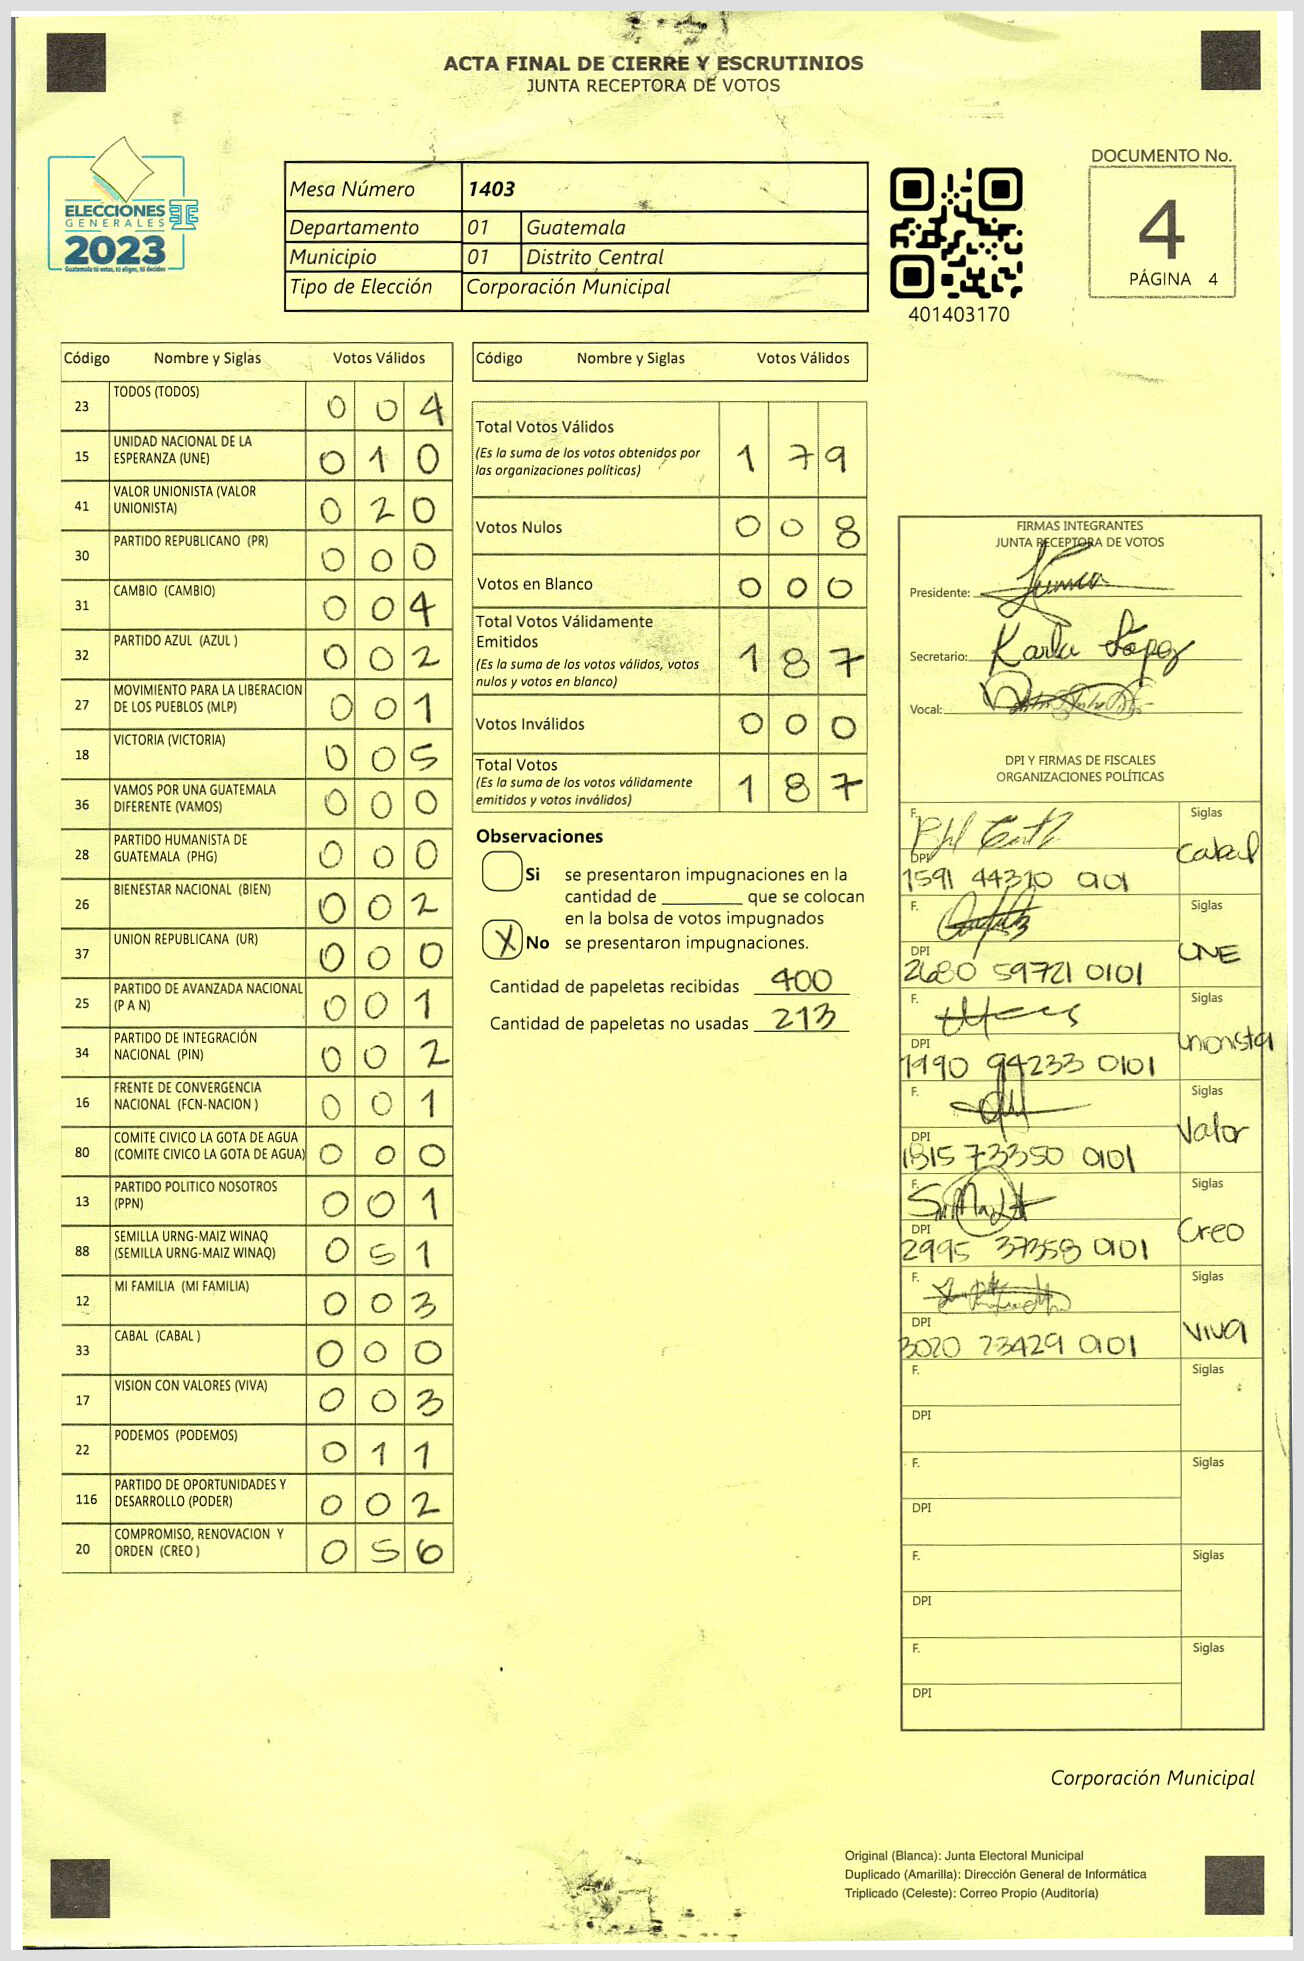 ACTA FINAL DE CIERRE Y ESCRUTINIOS
JUNTA RECEPTORA DE VOTOS
ELECCIONES
GENERALES
2023
Guatemala tú votas, tú eliges, tú decides
Mesa Número 1403
Departamento 01 Guatemala
Municipio 01 Distrito Central
Tipo de Elección Corporación Municipal
401403170
DOCUMENTO No.
4
PÁGINA 4
Código Nombre y Siglas Votos Válidos
23 TODOS (TODOS) 0 0 4
15 UNIDAD NACIONAL DE LA ESPERANZA (UNE) 0 1 0
41 VALOR UNIONISTA (VALOR UNIONISTA) 0 2 0
30 PARTIDO REPUBLICANO (PR) 0 0 0
31 CAMBIO (CAMBIO) 0 0 4
32 PARTIDO AZUL (AZUL ) 0 0 2
27 MOVIMIENTO PARA LA LIBERACION DE LOS PUEBLOS (MLP) 0 0 1
18 VICTORIA (VICTORIA) 0 0 5
36 VAMOS POR UNA GUATEMALA DIFERENTE (VAMOS) 0 0 0
28 PARTIDO HUMANISTA DE GUATEMALA (PHG) 0 0 0
26 BIENESTAR NACIONAL (BIEN) 0 0 2
37 UNION REPUBLICANA (UR) 0 0 0
25 PARTIDO DE AVANZADA NACIONAL (P A N) 0 0 1
34 PARTIDO DE INTEGRACIÓN NACIONAL (PIN) 0 0 2
16 FRENTE DE CONVERGENCIA NACIONAL (FCN-NACION ) 0 0 1
80 COMITE CIVICO LA GOTA DE AGUA (COMITE CIVICO LA GOTA DE AGUA) 0 0 0
13 PARTIDO POLITICO NOSOTROS (PPN) 0 0 1
88 SEMILLA URNG-MAIZ WINAQ (SEMILLA URNG-MAIZ WINAQ) 0 5 1
12 MI FAMILIA (MI FAMILIA) 0 0 3
33 CABAL (CABAL ) 0 0 0
17 VISION CON VALORES (VIVA) 0 0 3
22 PODEMOS (PODEMOS) 0 1 1
116 PARTIDO DE OPORTUNIDADES Y DESARROLLO (PODER) 0 0 2
20 COMPROMISO, RENOVACION Y ORDEN (CREO ) 0 5 6
Código Nombre y Siglas Votos Válidos
Total Votos Válidos 1 7 9
(Es la suma de los votos obtenidos por
las organizaciones políticas)
Votos Nulos 0 0 8
Votos en Blanco 0 0 0
Total Votos Válidamente
Emitidos 1 8 7
(Es la suma de los votos válidos, votos
nulos y votos en blanco)
Votos Inválidos 0 0 0
Total Votos 1 8 7
(Es la suma de los votos válidamente
emitidos y votos inválidos)
Observaciones
Si se presentaron impugnaciones en la
cantidad de ________ que se colocan
en la bolsa de votos impugnados
X No se presentaron impugnaciones.
Cantidad de papeletas recibidas 400
Cantidad de papeletas no usadas 213
FIRMAS INTEGRANTES
JUNTA RECEPTORA DE VOTOS
Presidente:
Secretario: Karla López
Vocal:
DPI Y FIRMAS DE FISCALES
ORGANIZACIONES POLÍTICAS
F. Siglas
Cabal
DPI
1591 44310 0101
F. Siglas
UNE
DPI
2680 59721 0101
F. Siglas
Unionista
DPI
1990 94233 0101
F. Siglas
Valor
DPI
1815 73350 0101
F. Siglas
Creo
DPI
2995 37358 0101
F. Siglas
VIVA
DPI
3020 23429 0101
F. Siglas
DPI
F. Siglas
DPI
F. Siglas
DPI
F. Siglas
DPI
Corporación Municipal
Original (Blanca): Junta Electoral Municipal
Duplicado (Amarilla): Dirección General de Informática
Triplicado (Celeste): Correo Propio (Auditoría)